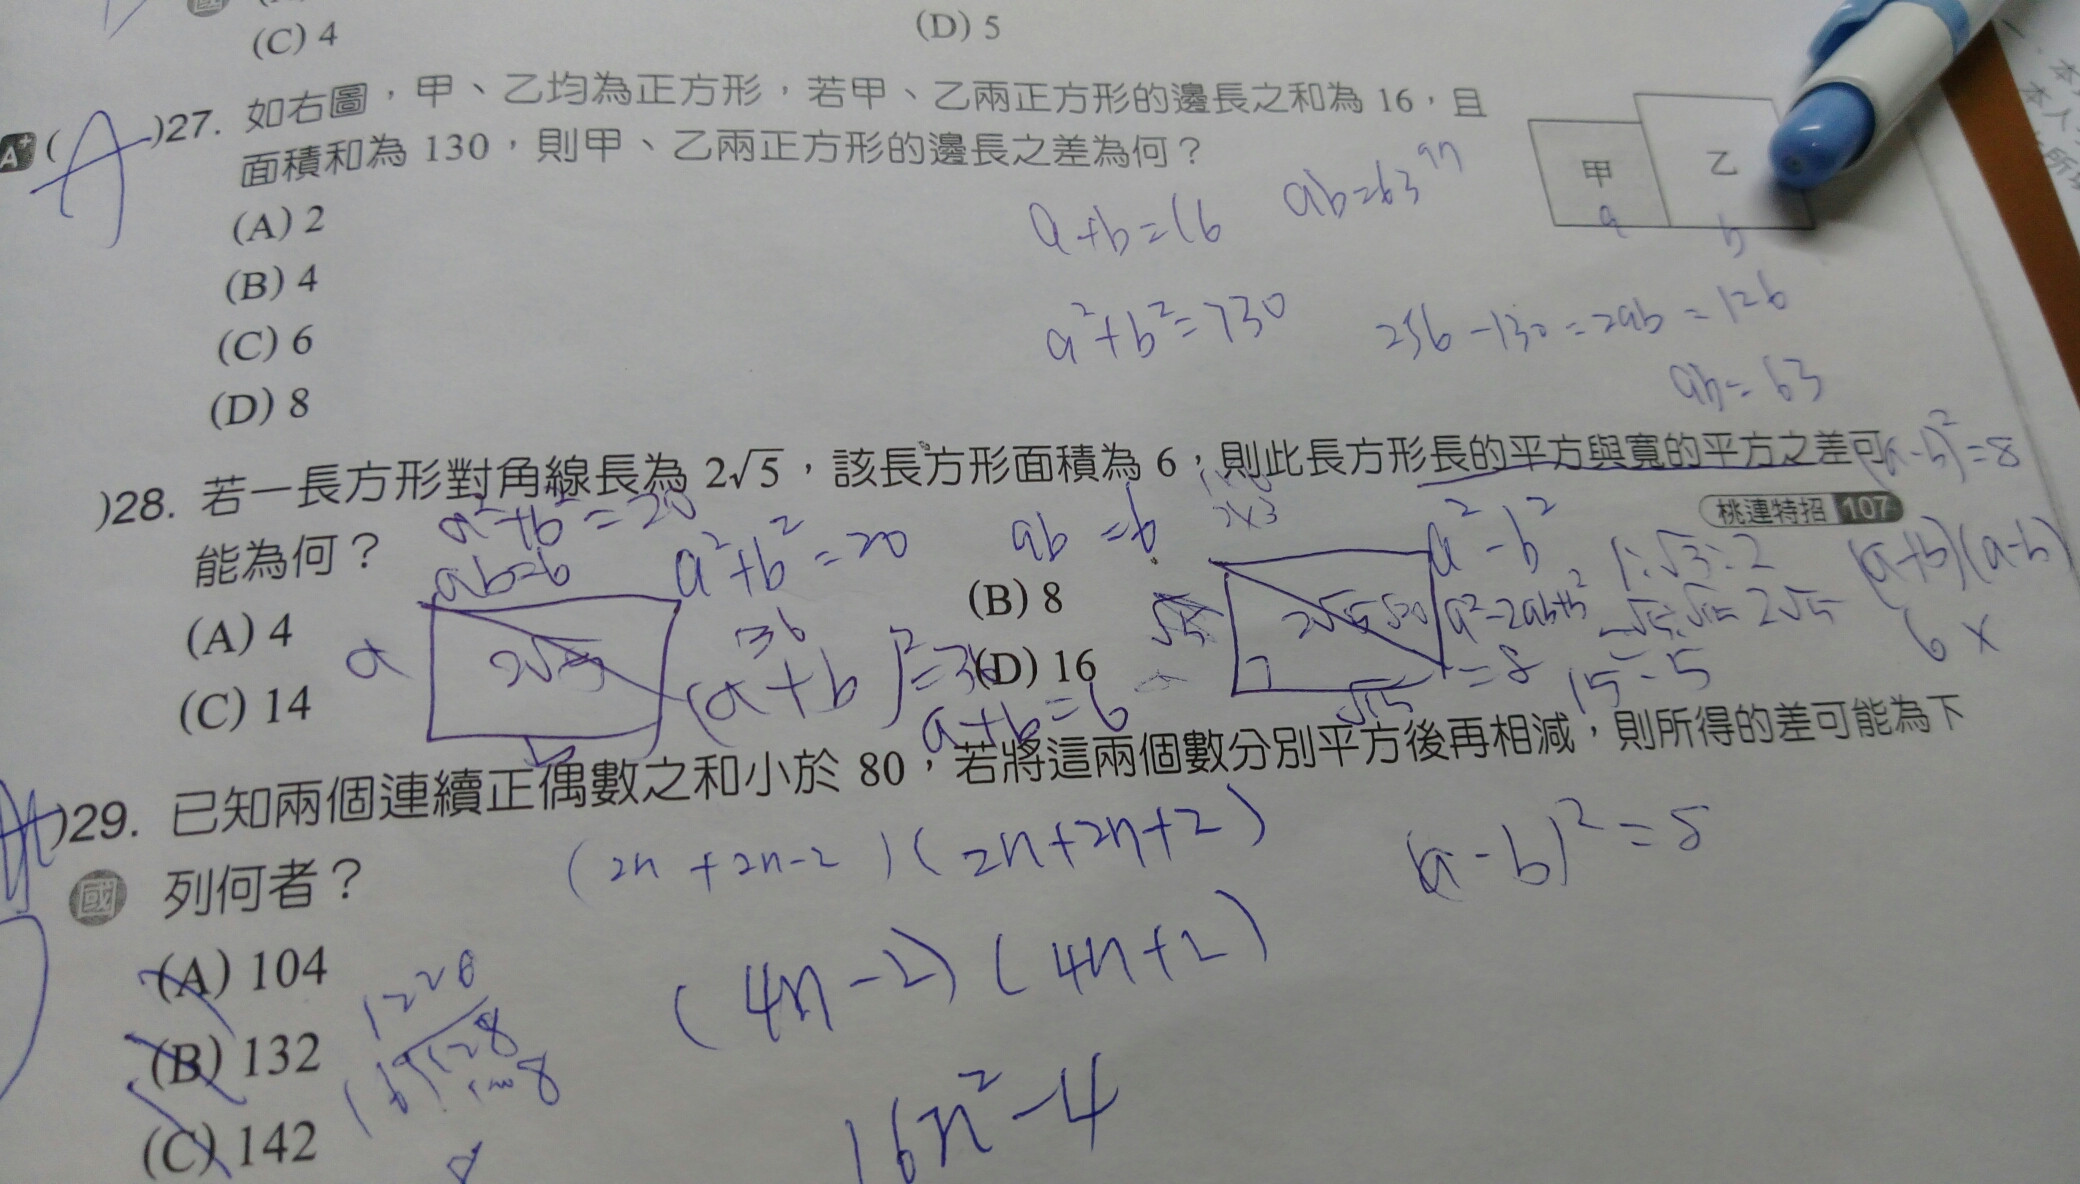 (C) 4
(D) 5
A⁺ ( A )27. 如右圖，甲、乙均為正方形，若甲、乙兩正方形的邊長之和為 16，且
面積和為 130，則甲、乙兩正方形的邊長之差為何？
甲
乙
a
b
(A) 2
(B) 4
(C) 6
(D) 8
a+b=16
ab=63
a²+b²=130
256-130=2ab=126
ab=63
)28. 若一長方形對角線長為 2√5，該長方形面積為 6，則此長方形長的平方與寬的平方之差可
能為何？
桃連特招 107
(a-b)²=8
a²+b²=20
ab=6
a²+b²=20
ab=6
2×3
a²-b²
1:√3:2
(a+b)(a-b)
(A) 4
(B) 8
(C) 14
(D) 16
a
2√5
b
36
(a+b)²=36
a+b=6
a²-2ab+b²
=8
√15
15-5
6 ×
)29. 已知兩個連續正偶數之和小於 80，若將這兩個數分別平方後再相減，則所得的差可能為下
國 列何者？
(2n+2n-2)(2n+2n+2)
(a-b)²=8
(4n-2)(4n+2)
16n²-4
(A) 104
(B) 132
(C) 142